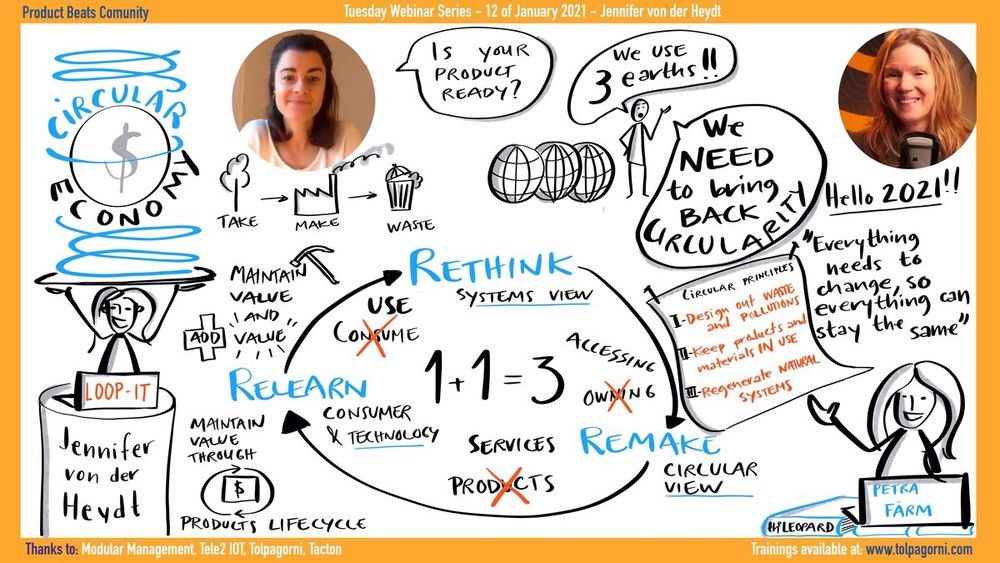 Product Beats Comunity
Tuesday Webinar Series - 12 of January 2021 - Jennifer von der Heydt
CIRCULAR
ECONOMY
$
IS YOUR
PRODUCT
READY?
We USE
3 earths!!
We
NEED
to bring
BACK
CIRCULARITY
Hello 2021!!
TAKE
MAKE
WASTE
"Everything
needs to
change, so
everything can
stay the same"
CIRCULAR PRINCIPLES
I-Design out WASTE
and POLLUTIONS
II-Keep products and
materials IN USE
III-Regenerate NATURAL
SYSTEMS
MAINTAIN
VALUE
AND
ADD VALUE
RETHINK
SYSTEMS VIEW
USE
CONSUME
1+1=3
ACCESSING
OWNING
RELEARN
CONSUMER
& TECHNOLOGY
SERVICES
PRODUCTS
REMAKE
CIRCULAR
VIEW
LOOP-IT
Jennifer
von der
Heydt
MAINTAIN
VALUE
THROUGH
$
PRODUCTS LIFECYCLE
PETRA
FÄRM
HiLEOPARD
Thanks to: Modular Management, Tele2 IOT, Tolpagorni, Tacton
Trainings available at: www.tolpagorni.com